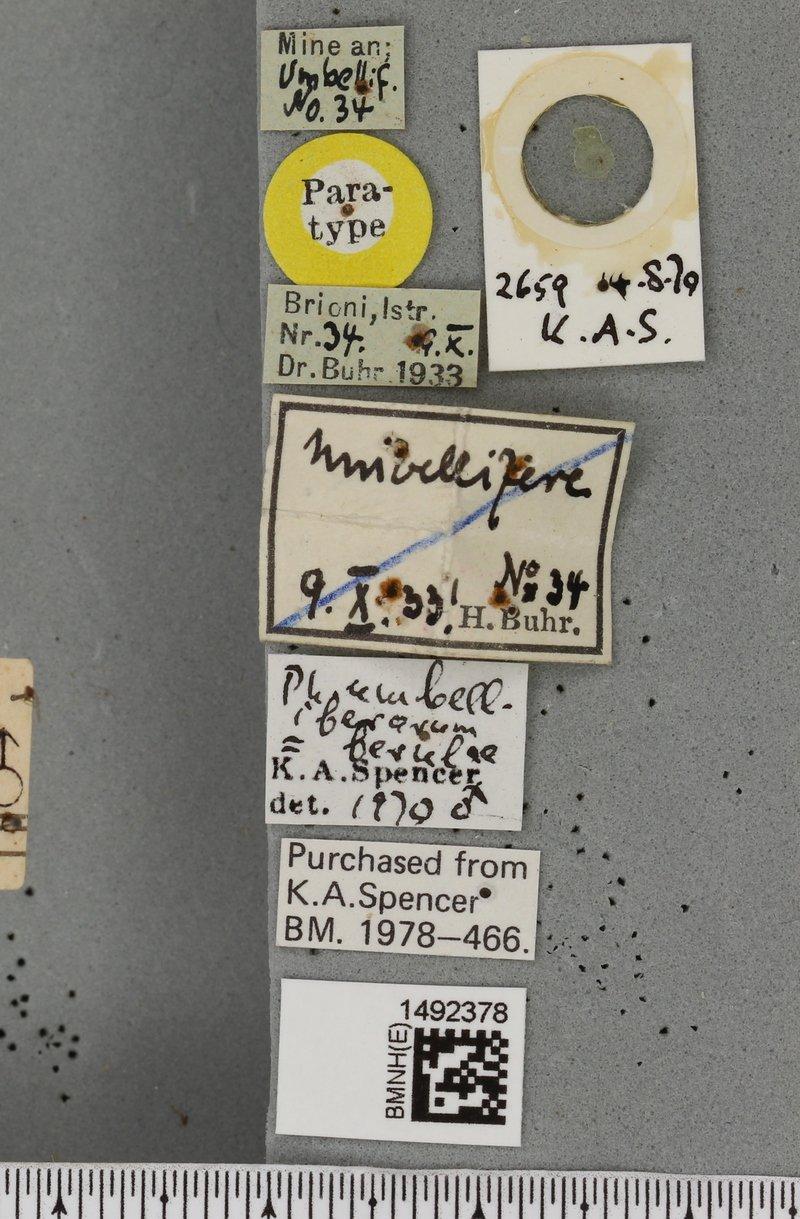 Mine an:
Umbellif.
No. 34
Para-
type
Brioni, Istr.
Nr. 34. 9. X.
Dr. Buhr 1933
2659 4.8.70
K.A.S.
Umbellifere
9. X. 33! No 34
H. Buhr.
Ph. umbell-
iferarum
= ferulae
K.A.Spencer
det. 1970 ♂
Purchased from
K.A.Spencer
BM. 1978–466.
1492378
BMNH(E)